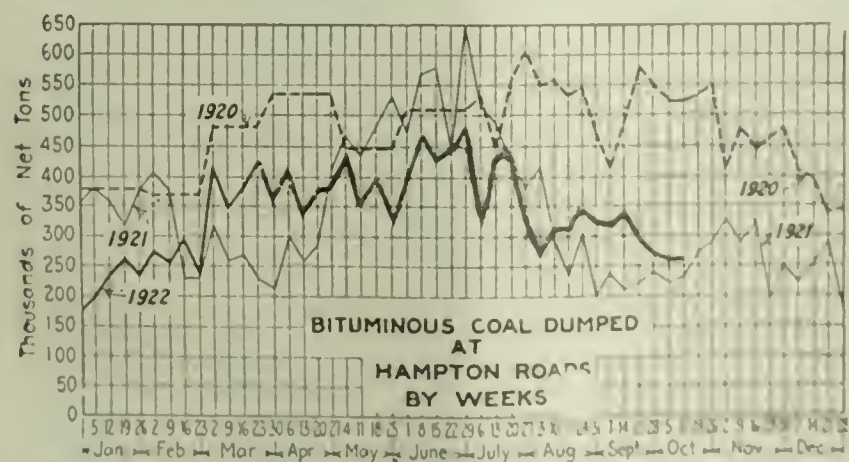 650
650
550
500
450
400
350
300
250
200
150
100
50
0
Thousands of Net Tons
1920
1921
1922
1920
1921
BITUMINOUS COAL DUMPED
AT
HAMPTON ROADS
BY WEEKS
5 12 19 26 2 9 16 23 2 9 16 23 30 6 13 20 4 11 18 1 8 15 22 29 6 13 20 27 3 10
Jan Feb Mar Apr May June July Aug Sept Oct Nov Dec